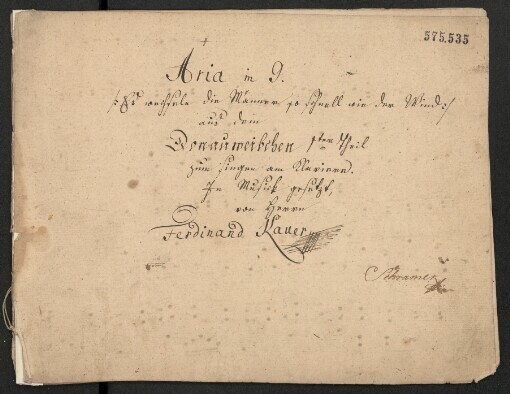 575.535
Aria in G.
/: Es wechseln die Männer so schnell wie der Wind :/
aus dem
Donauweibchen 1ten Theil
zum singen am Klavier.
In Musick gesetzt,
von Herrn
Ferdinand Kauer